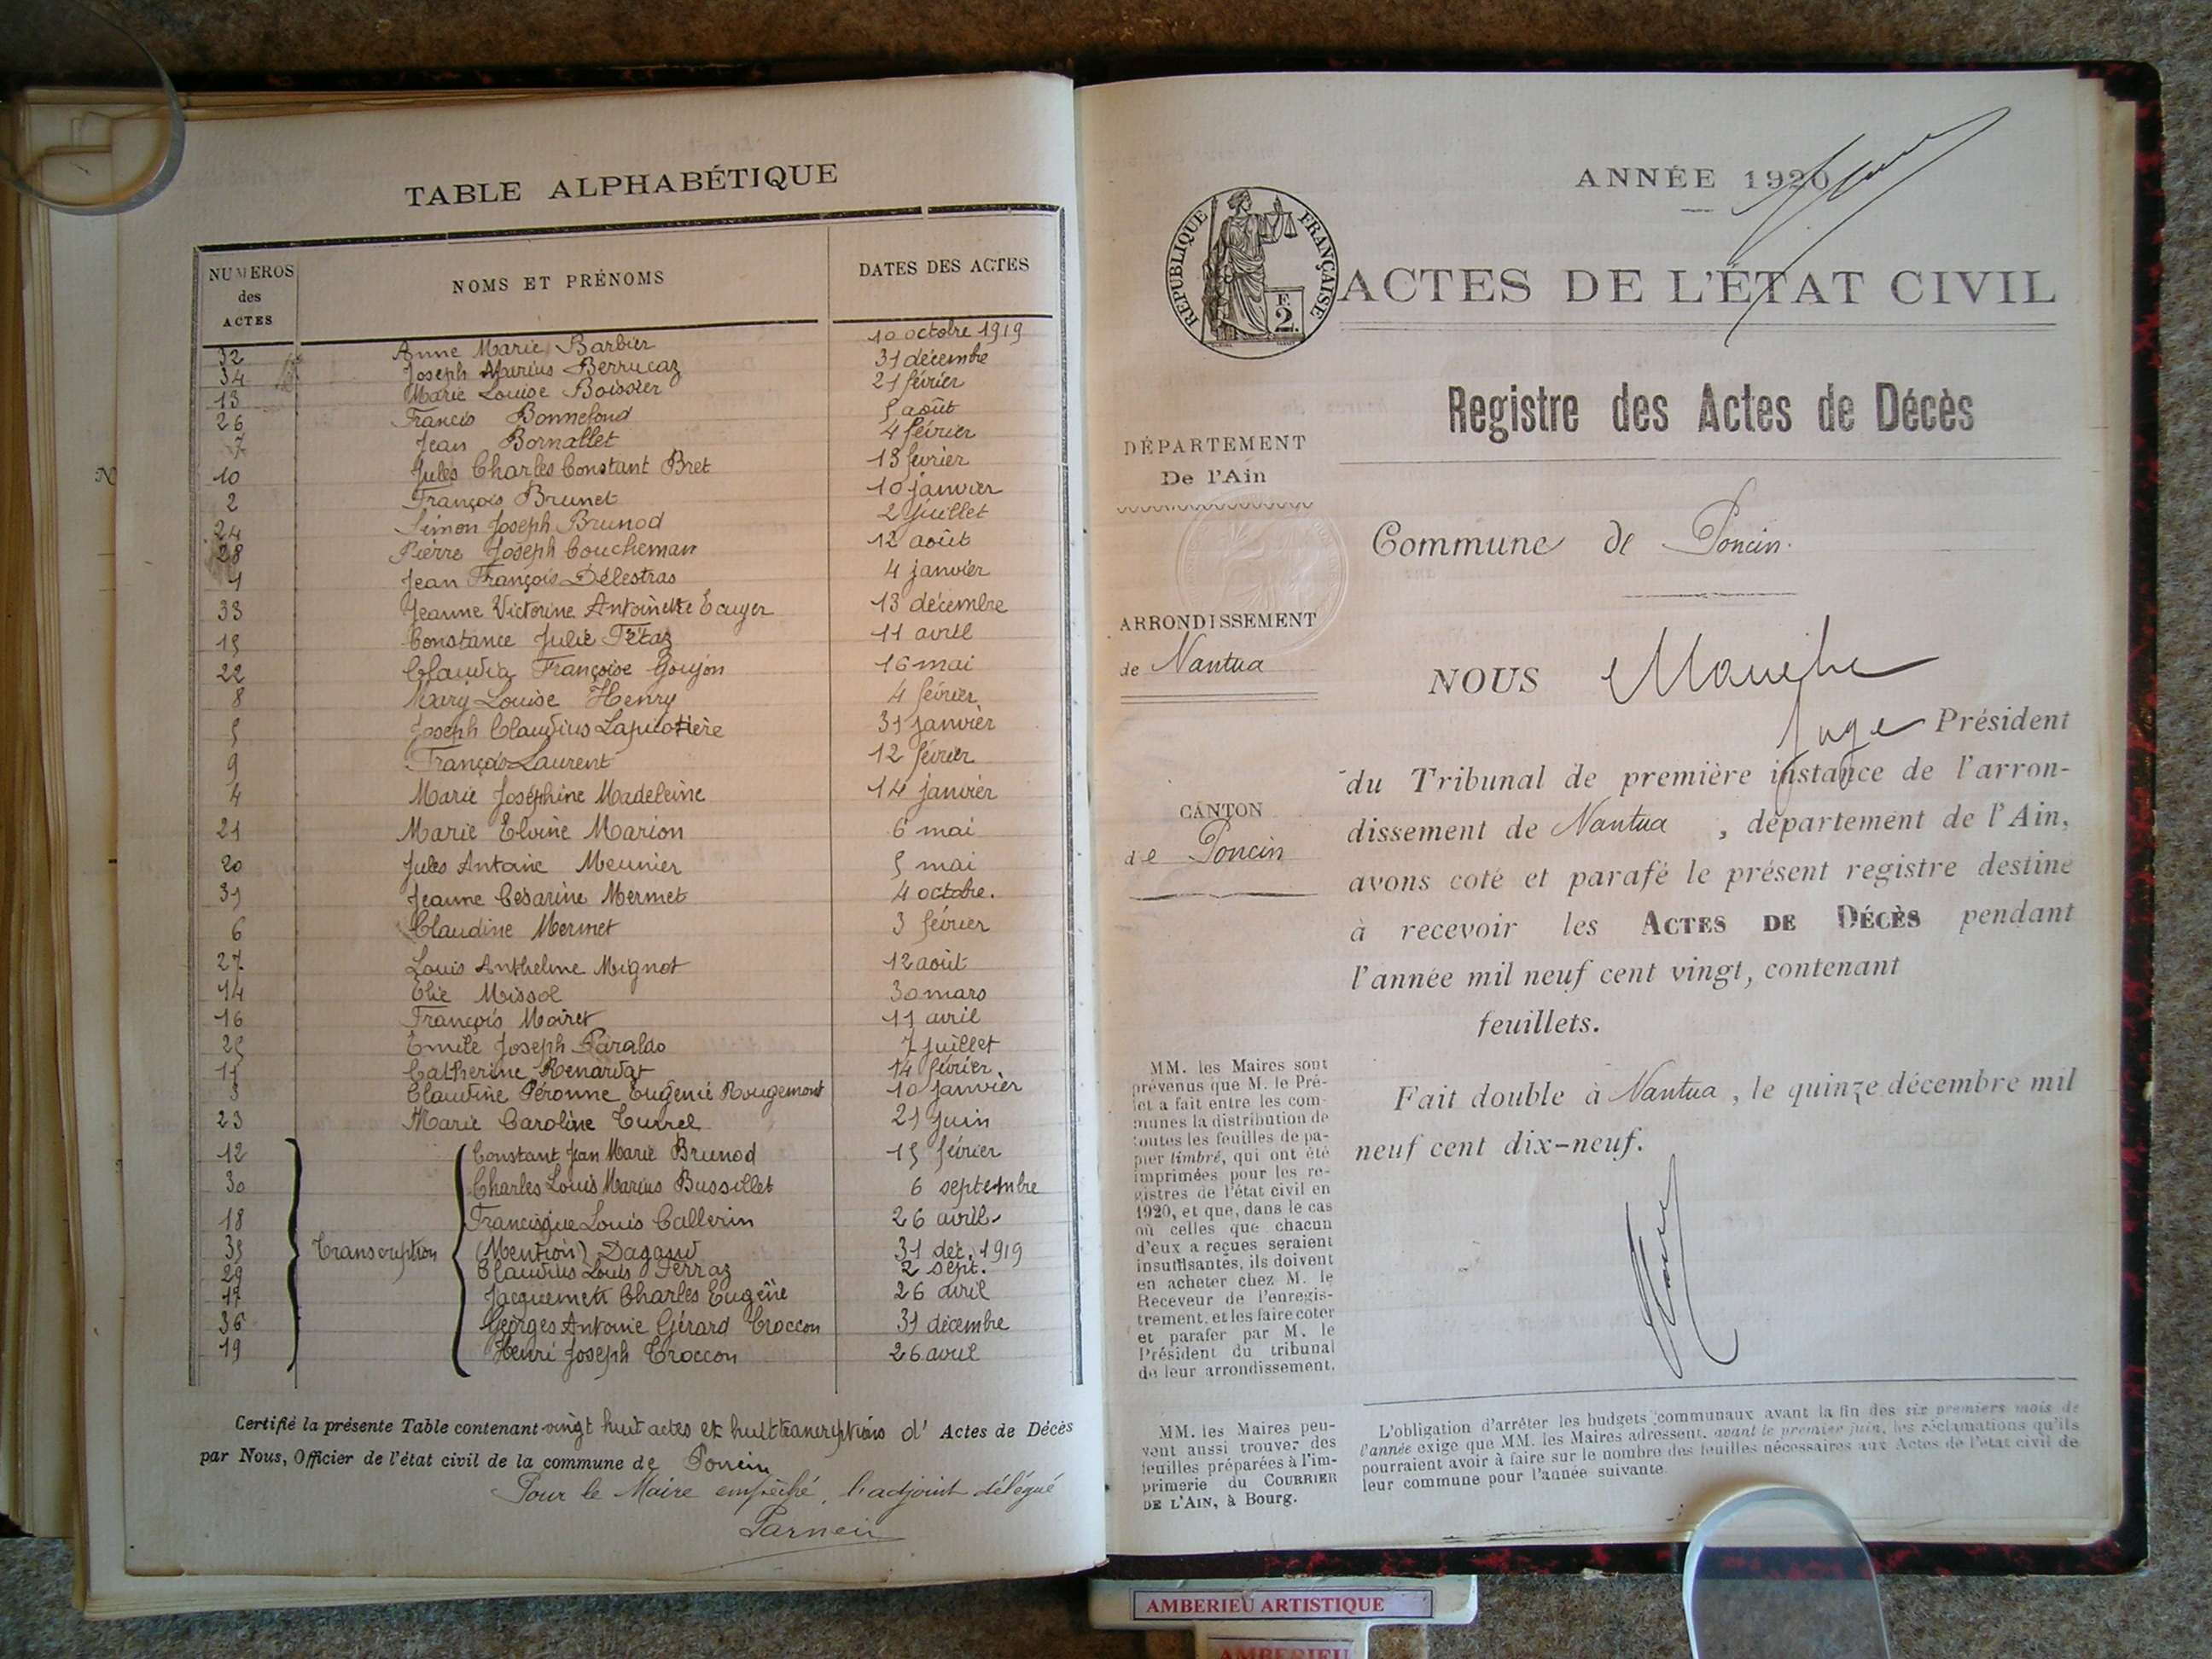 TABLE ALPHABÉTIQUE
NUMEROS des ACTES NOMS ET PRÉNOMS DATES DES ACTES
32 Anne Marie Barbier 10 octobre 1919
34 Joseph Marius Berrucaz 31 décembre
13 Marie Louise Boissier 21 février
26 Francis Bonnefond 5 août
7 Jean Bornallet 4 février
10 Jules Charles Constant Bret 13 février
2 François Brunet 10 janvier
24 Simon Joseph Brunod 2 juillet
28 Pierre Joseph Coucheman 12 août
1 Jean François Délestras 4 janvier
33 Jeanne Victorine Antoinette Ecuyer 13 décembre
15 Constance Julie Fétaz 11 avril
22 Claudia Françoise Goujon 16 mai
8 Mary Louise Henry 4 février
5 Joseph Claudius Lapicotière 31 janvier
9 François Laurent 12 février
4 Marie Joséphine Madeleine 14 janvier
21 Marie Elvine Marion 6 mai
20 Jules Antoine Meunier 5 mai
31 Jeanne Césarine Mermet 4 octobre.
6 Claudine Mermet 3 février
27 Louis Anthelme Mignot 12 août
14 Elie Missol 30 mars
16 François Moiret 11 avril
25 Emile Joseph Paraldo 7 juillet
11 Catherine Renardat 14 février
3 Claudine Péronne Eugénie Rougemont 10 janvier
23 Marie Caroline Turrel 21 juin
12 Constant Jean Marie Brunod 15 février
30 Charles Louis Marius Bussillet 6 septembre
18 Francisque Louis Callerin 26 avril
35 Transcription (Mention) Dagaud 31 déc. 1919
29 Claudius Louis Ferraz 2 sept.
17 Jacquemett Charles Eugène 26 avril
36 Georges Antoine Gérard Troccon 31 décembre
19 Henri Joseph Troccon 26 avril
Certifié la présente Table contenant vingt huit actes et huit transcriptions d' Actes de Décès
par Nous, Officier de l'état civil de la commune de Poncin
Pour le Maire empêché, l'adjoint délégué
ANNÉE 1920
RÉPUBLIQUE FRANÇAISE
E 2.
ACTES DE L'ÉTAT CIVIL
Registre des Actes de Décès
DÉPARTEMENT
De l'Ain
Commune de Poncin.
ARRONDISSEMENT
de Nantua
NOUS
Juge Président
du Tribunal de première instance de l'arron-
dissement de Nantua, département de l'Ain,
CANTON
de Poncin
avons coté et parafé le présent registre destiné
à recevoir les ACTES DE DÉCÈS pendant
l'année mil neuf cent vingt, contenant
feuillets.
Fait double à Nantua, le quinze décembre mil
neuf cent dix-neuf.
MM. les Maires sont
prévenus que M. le Pré-
fet a fait entre les com-
munes la distribution de
toutes les feuilles de pa-
pier timbré, qui ont été
imprimées pour les re-
gistres de l'état civil en
1920, et que, dans le cas
où celles que chacun
d'eux a reçues seraient
insuffisantes, ils doivent
en acheter chez M. le
Receveur de l'enregis-
trement, et les faire coter
et parafer par M. le
Président du tribunal
de leur arrondissement.
MM. les Maires peu-
vent aussi trouver des
feuilles préparées à l'im-
primerie du COURRIER
DE L'AIN, à Bourg.
L'obligation d'arrêter les budgets communaux avant la fin des six premiers mois de
l'année exige que MM. les Maires adressent, avant le premier juin, les réclamations qu'ils
pourraient avoir à faire sur le nombre des feuilles nécessaires aux Actes de l'état civil de
leur commune pour l'année suivante.
AMBERIEU ARTISTIQUE
AMBERIEU